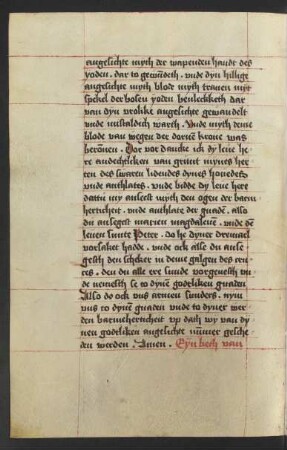 angesichte myth der wapenden handt des
yoden . dar to gewuͤdeth . vnde dyn hillige
angesichte myth blode myth tranen myt
spekel der bosen yoden beulecketh dar
van dyn vrolike angesichte gewandelt
vnde mistaldich warth . Vnde myth deme
blode van wegen der dornē krone was
berōnen . Hir vor dancke ick dy leue he
re andechtichen van grunt mynes herten
des swaren lidendes dynes houedes
vnde anthlates . vnde bidde dy leue here
dattu my anseest myth den ogen der barm
herticheit . vnde anthlate der gnadē . alsso
du anseghest marien magdalenē . vnde dē
leuen sunte Peter . do he dyner dreemael
vorsaket hadde . vnde ock alsse du anse
gest den scheker in deme galgen des cru
ces . den du alle ere sunde vorgeuest vn
de nemest se to dynē godtliken gnaden
Also do ock vns armen sunders . nym
vns to dynē gnaden vnde to dyner wer
den barmeherticheit vp dath wy van dy
nen godtliken angesichte nūmer gesche
den werden . Amen . Eyn beth van